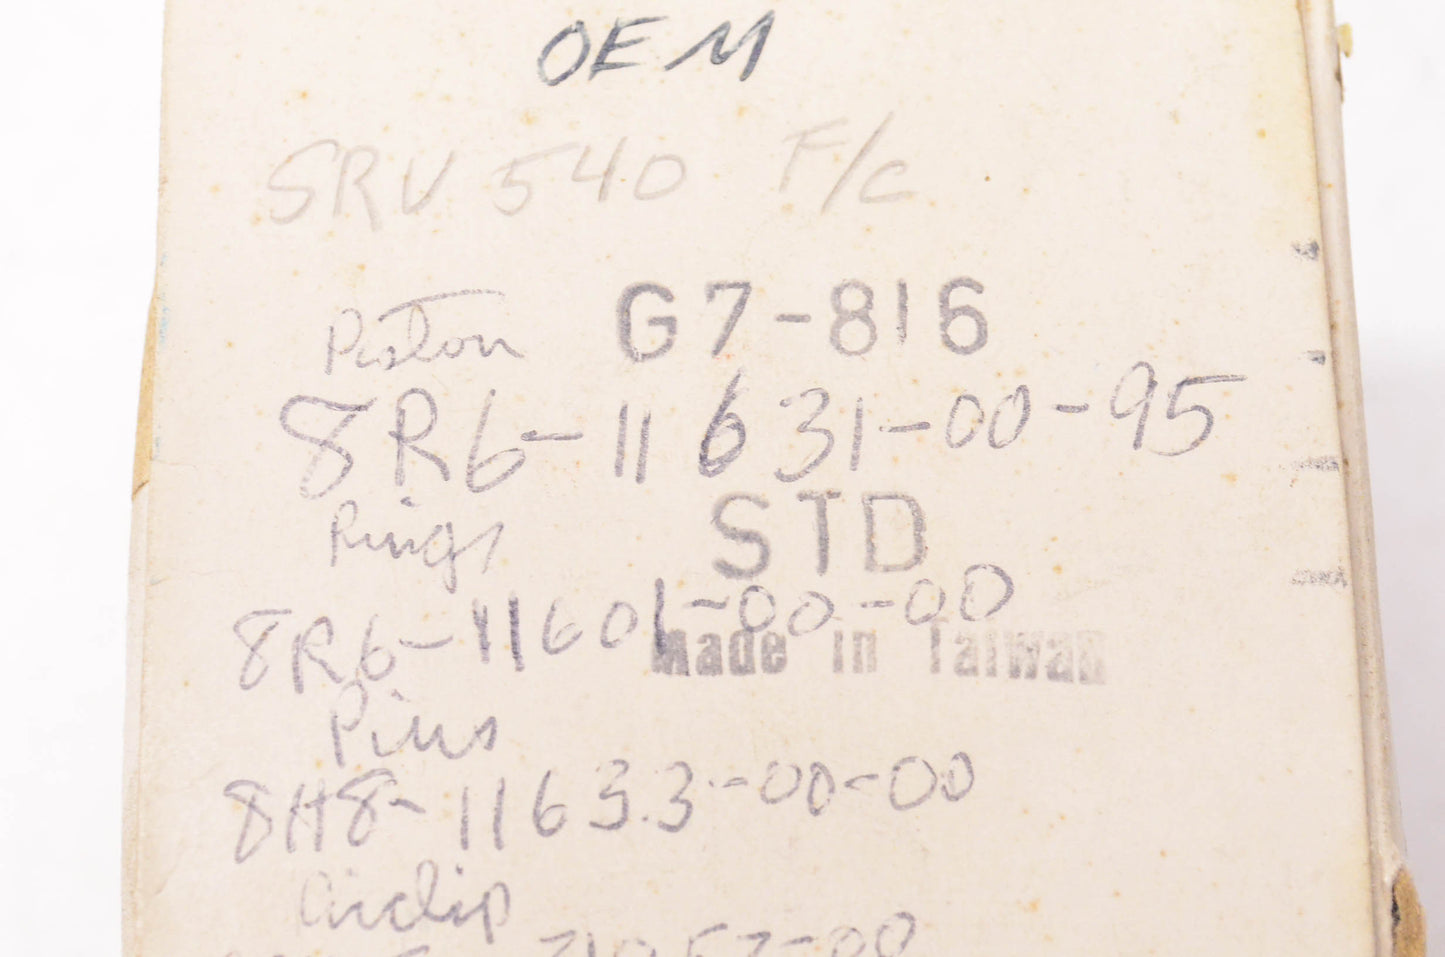 OEM
SRV 540 F/C
Piston G7-816
8R6-11631-00-95
Rings STD
8R6-11601-00-00
Made in Taiwan
Pins
8H8-11633-00-00
Circlip